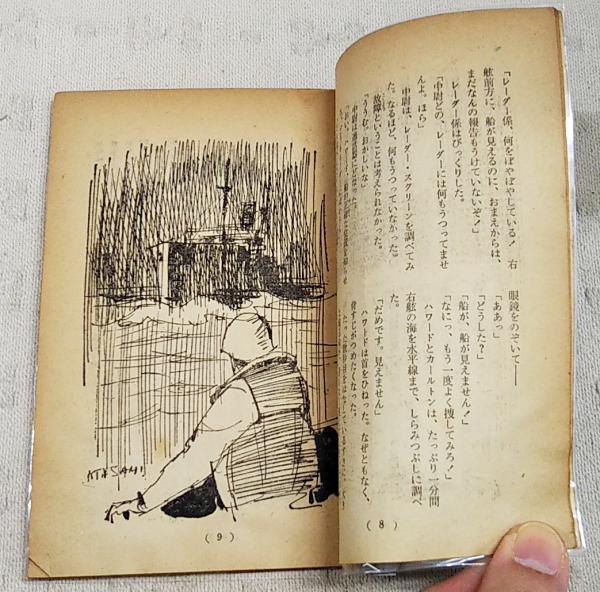 「レーダー係、何をぼやぼやしている！　右
舷前方に、船が見えるのに、おまえからは、
まだなんの報告もうけていないぞ！」
レーダー係はびっくりした。
「中尉どの、レーダーには何もうつってませ
んよ。ほら」
中尉は、レーダー・スクリーンを調べてみ
た。なるほど、何もうつっていなかった。
故障ということは考えられなかった。
「ううむ、おかしいな」
眼鏡をのぞいて――
「ああっ」
「どうした？」
「船が、船が見えません！」
「なにっ、もう一度よく捜してみろ！」
ハワードとカールトンは、たっぷり一分間
右舷の海を水平線まで、しらみつぶしに調べ
た。
「だめです。見えません」
ハワードは首をひねった。なぜともなく、
背すじがつめたくなった。
(8)
(9)